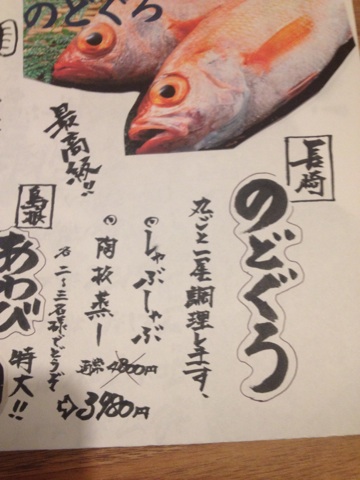 のどぐろ
最高級!!
長崎
のどぐろ
丸ごと一尾調理します、
◎しゃぶしゃぶ
◎陶板蒸し
通常4800円
⇨3980円
二〜三名様でどうぞ
島根
あわび
特大!!